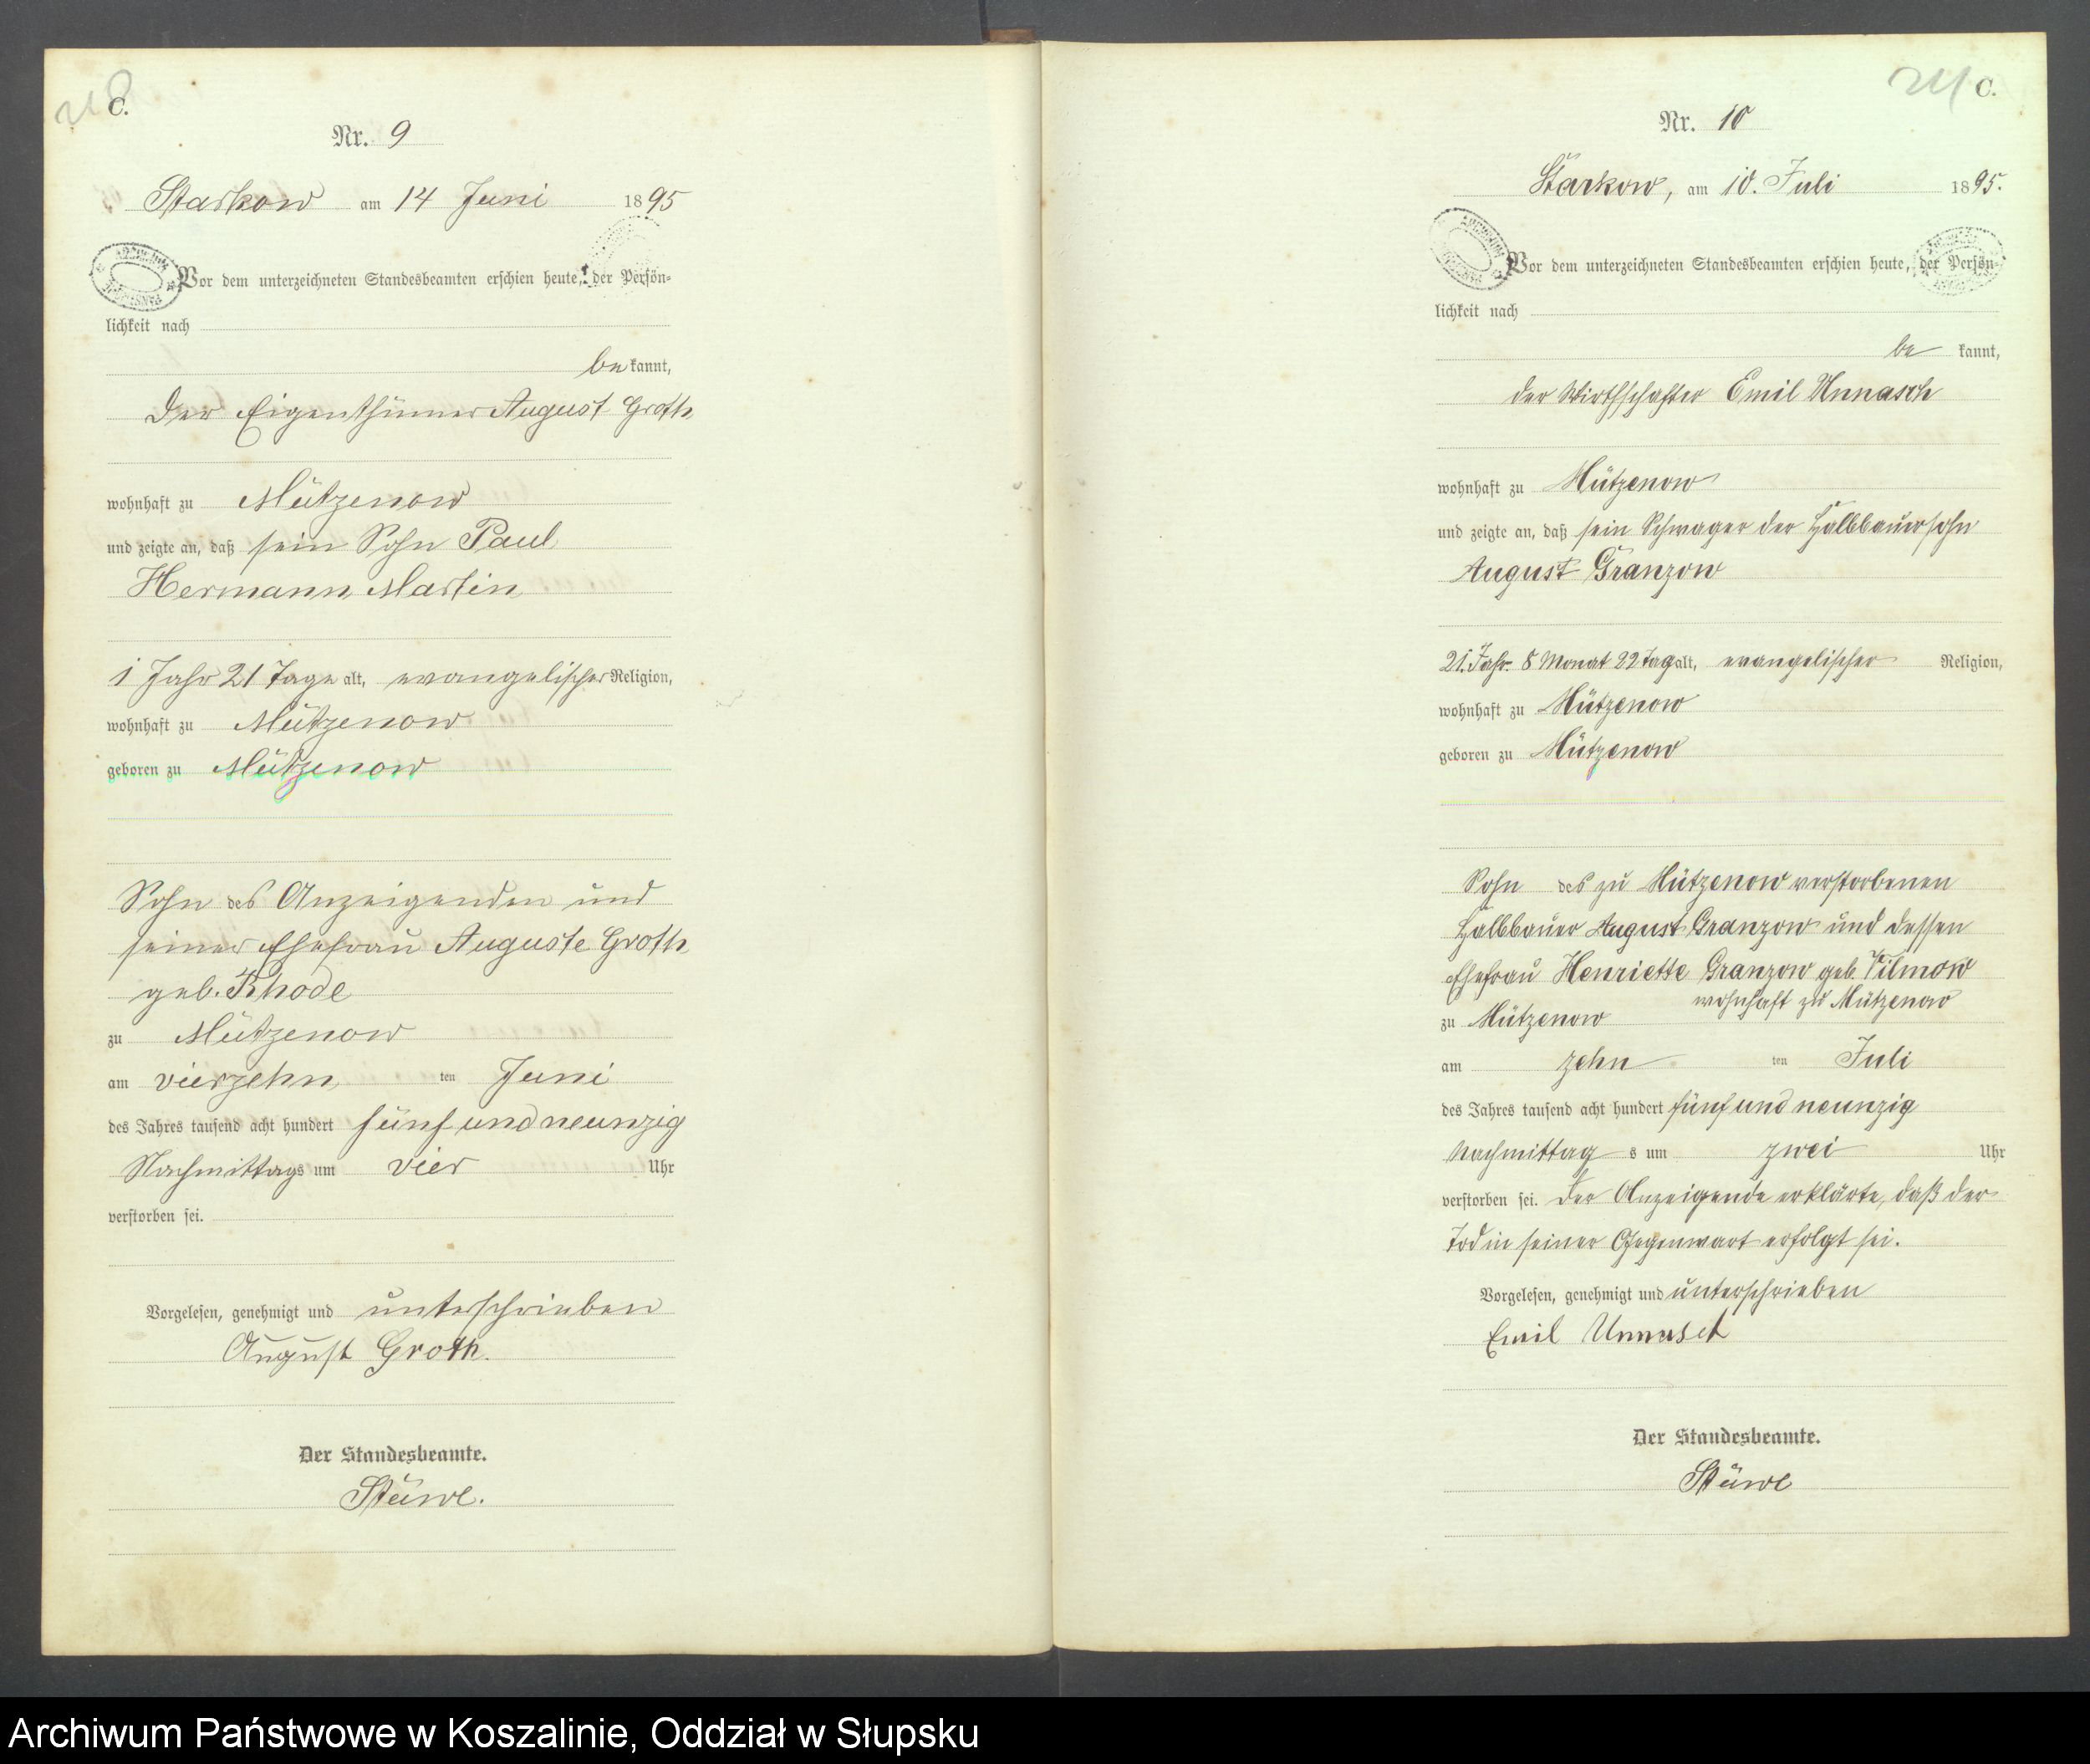 C.
Nr. 9
Starkow am 14 Juni 1895
Vor dem unterzeichneten Standesbeamten erschien heute, der Persön-
lichkeit nach
be kannt,
der Eigenthümer August Groth
wohnhaft zu Mützenow
und zeigte an, daß sein Sohn Paul
Hermann Martin
1 Jahr 21 Tage alt, evangelischer Religion,
wohnhaft zu Mützenow
geboren zu Mützenow
Sohn des Anzeigenden und
seiner Ehefrau Auguste Groth
geb. Rhode
zu Mützenow
am vierzehn ten Juni
des Jahres tausend acht hundert fünf und neunzig
Nachmittags um vier Uhr
verstorben sei.
Vorgelesen, genehmigt und unterschrieben
August Groth.
Der Standesbeamte.
Stüwe.
C.
Nr. 10
Starkow, am 10. Juli 1895.
Vor dem unterzeichneten Standesbeamten erschien heute, der Persön-
lichkeit nach
be kannt,
der Wirthschafter Emil Unnasch
wohnhaft zu Mützenow
und zeigte an, daß sein Schwager der Halbbauersohn
August Granzow
21. Jahr 8 Monat 22 Tag alt, evangelischer Religion,
wohnhaft zu Mützenow
geboren zu Mützenow
Sohn des zu Mützenow verstorbenen
Halbbauer August Granzow und dessen
Ehefrau Henriette Granzow geb. Vilmow
wohnhaft zu Mützenow
zu Mützenow
am zehn ten Juli
des Jahres tausend acht hundert fünf und neunzig
Nachmittag s um zwei Uhr
verstorben sei. Der Anzeigende erklärte, daß der
Tod in seiner Gegenwart erfolgt sei.
Vorgelesen, genehmigt und unterschrieben
Emil Unnasch
Der Standesbeamte.
Stüwe
Archiwum Państwowe w Koszalinie, Oddział w Słupsku